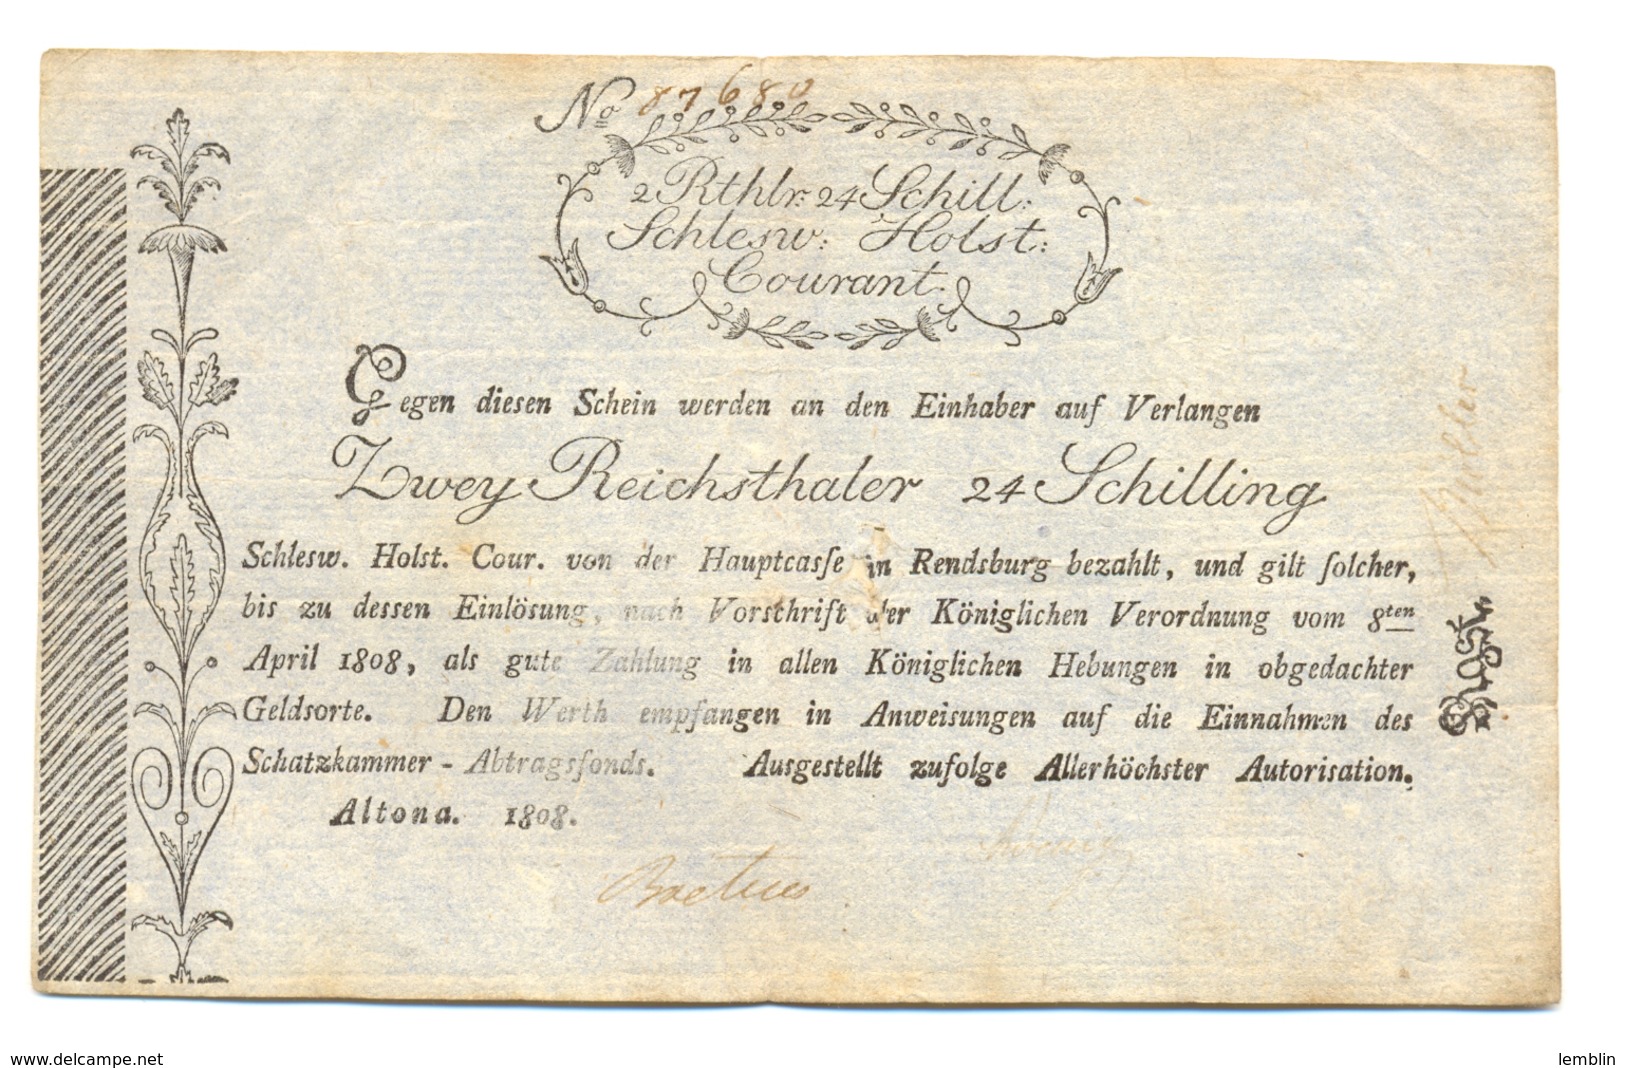 No 87680
2 Rthlr: 24 Schill:
Schlesw: Holst:
Courant.
Gegen diesen Schein werden an den Einhaber auf Verlangen
Zwey Reichsthaler 24 Schilling
Schlesw. Holst. Cour. von der Hauptcaſse in Rendsburg bezahlt, und gilt ſolcher,
bis zu dessen Einlösung, nach Vorschrift der Königlichen Verordnung vom 8ten
April 1808, als gute Zahlung in allen Königlichen Hebungen in obgedachter
Geldsorte. Den Werth empfangen in Anweisungen auf die Einnahmen des
Schatzkammer - Abtragsfonds. Ausgestellt zufolge Allerhöchster Autorisation.
Altona. 1808.
www.delcampe.net
lemblin